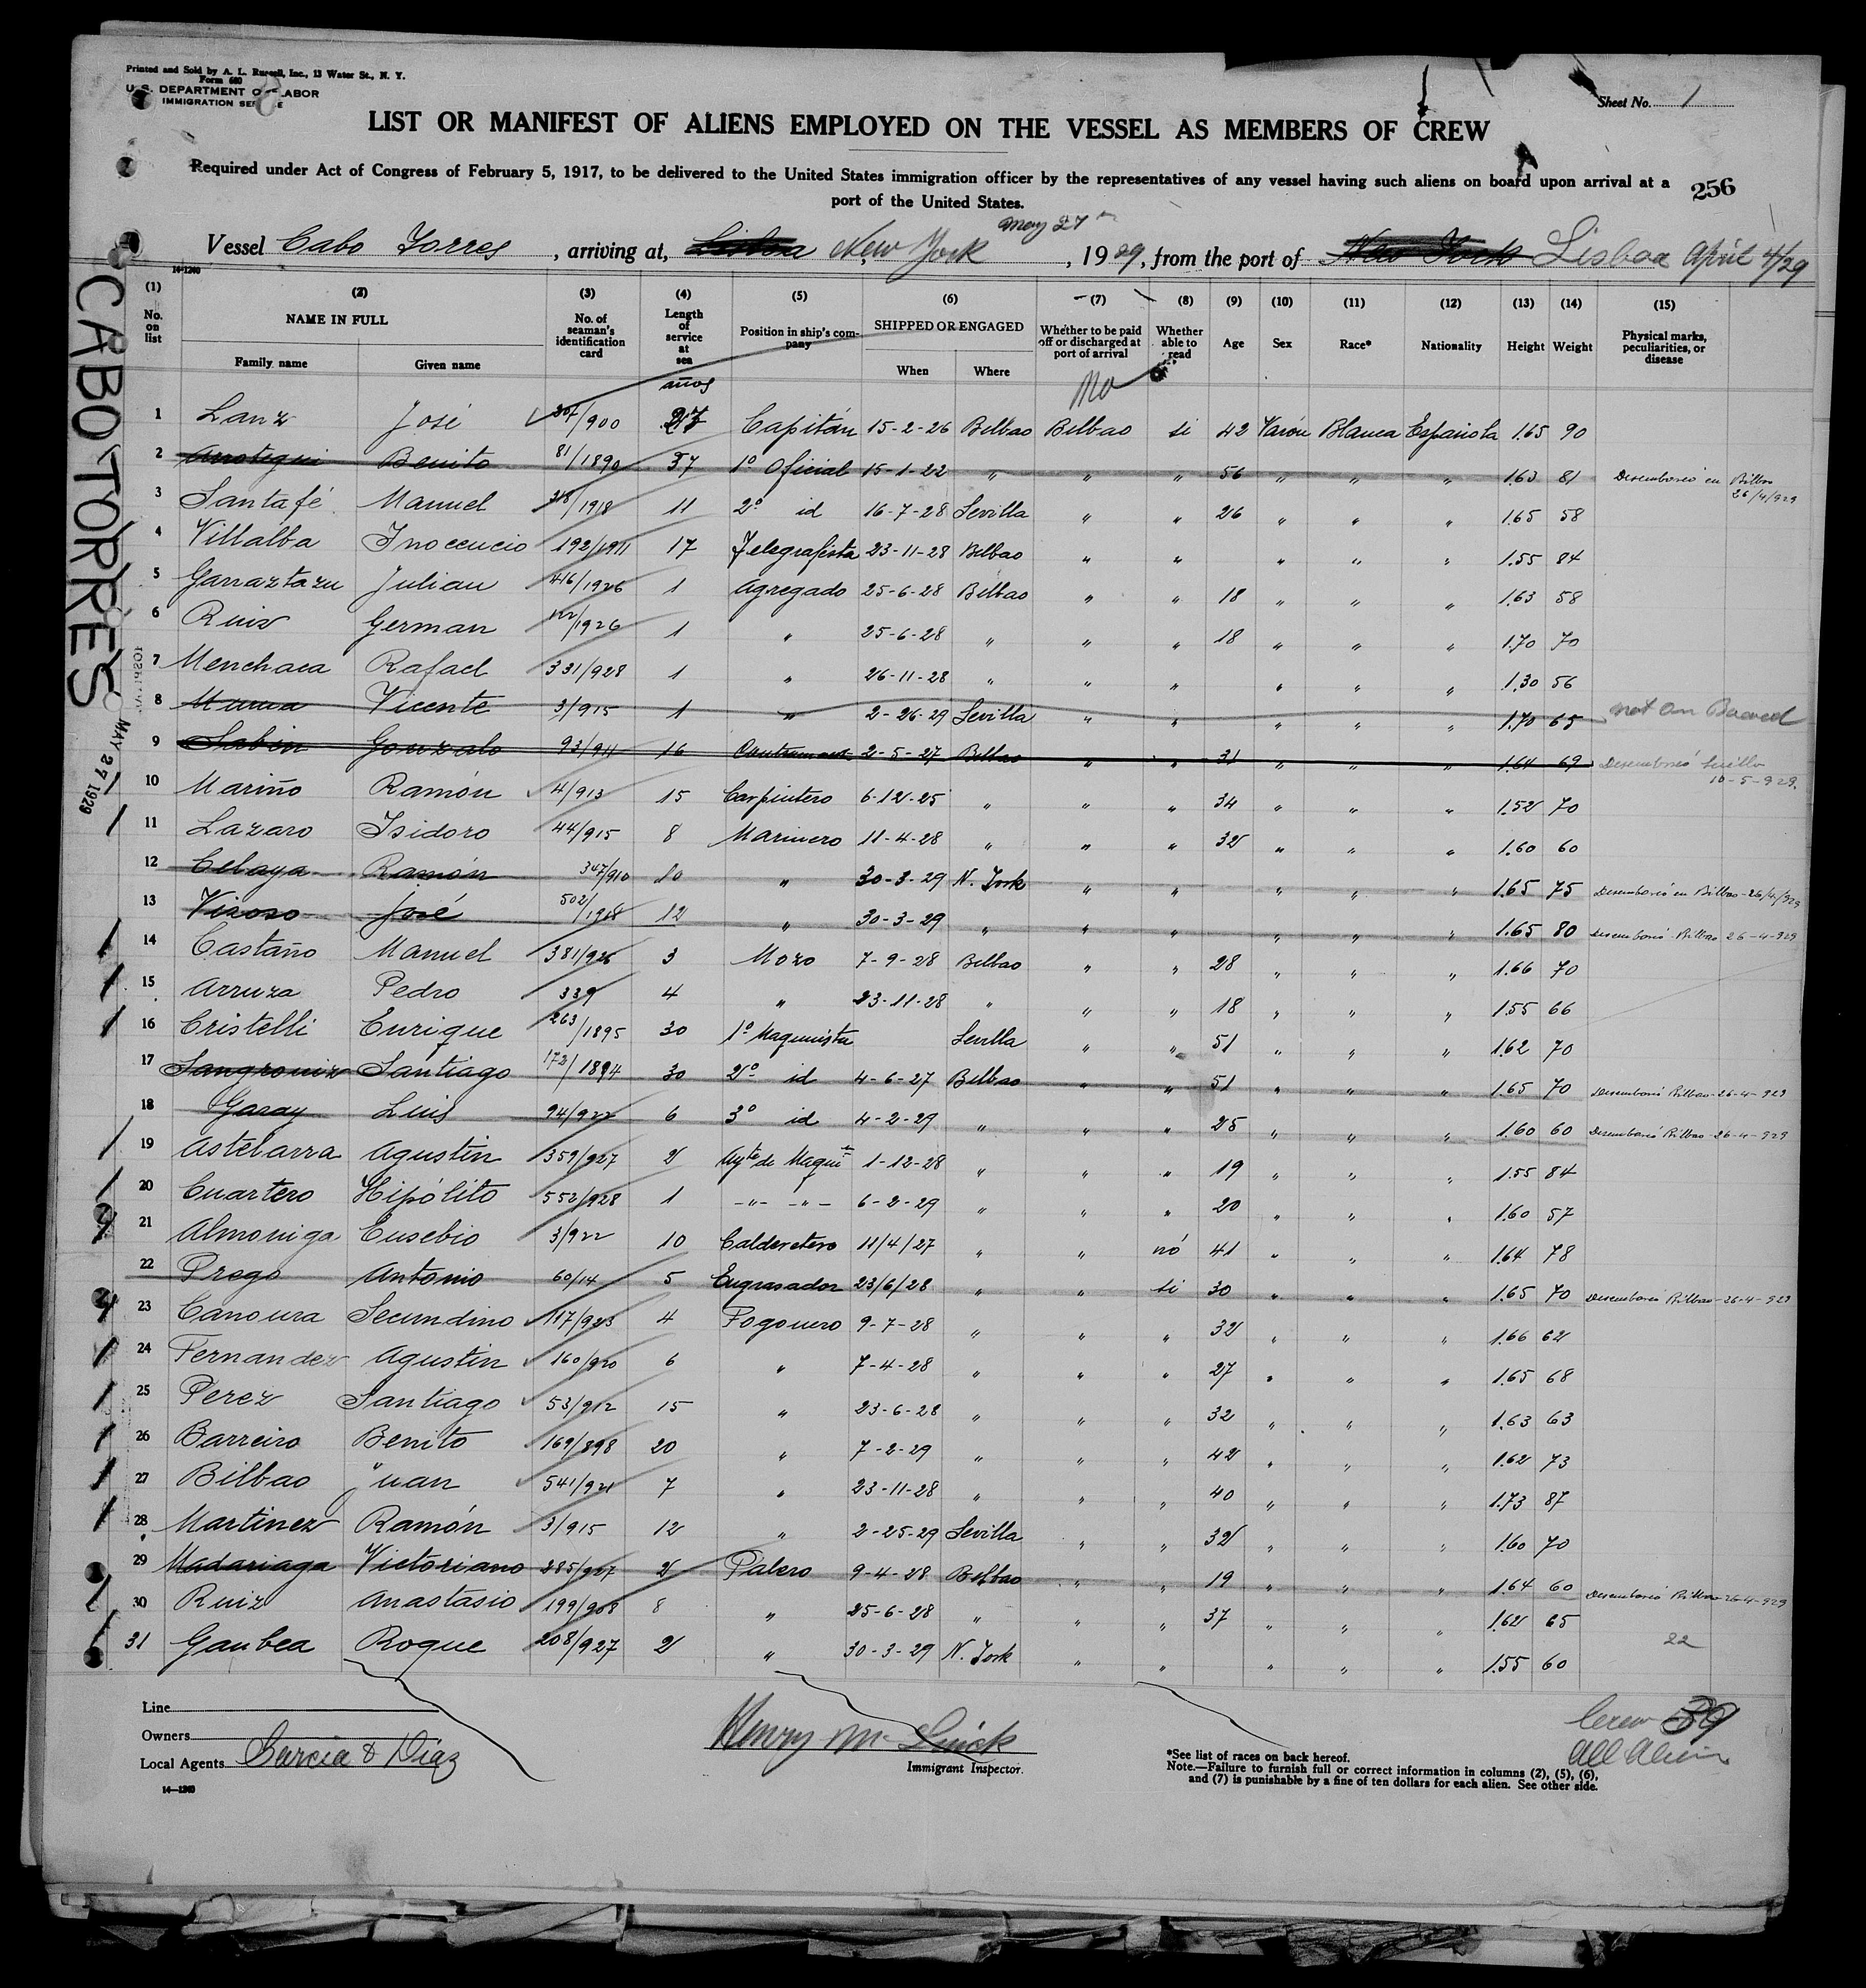 Printed and Sold by A. L. Russell, Inc., 13 Water St., N. Y.
Form 680
U. S. DEPARTMENT OF LABOR
IMMIGRATION SERVICE
Sheet No. 1
LIST OR MANIFEST OF ALIENS EMPLOYED ON THE VESSEL AS MEMBERS OF CREW
Required under Act of Congress of February 5, 1917, to be delivered to the United States immigration officer by the representatives of any vessel having such aliens on board upon arrival at a
port of the United States.
256
May 27th
Vessel Cabo Torres, arriving at, Lisboa New York, 1929, from the port of New York Lisboa April 4/29
14-1240
(1) (2) (3) (4) (5) (6) (7) (8) (9) (10) (11) (12) (13) (14) (15)
No. on list NAME IN FULL Family name Given name No. of seaman's identification card Length of service at sea Position in ship's company SHIPPED OR ENGAGED When Where Whether to be paid off or discharged at port of arrival Whether able to read Age Sex Race* Nationality Height Weight Physical marks, peculiarities, or disease
años No
1 Lanz José 207/900 27 Capitán 15-2-26 Bilbao Bilbao si 42 Varón Blanca Española 1.65 90
2 Arrotegui Benito 81/1890 37 1º Oficial 15-1-22 " " " 56 " " " 1.63 81 Desembarcó en Bilbao 26/4/929
3 Santafé Manuel 218/1918 11 2º id 16-7-28 Sevilla " " 26 " " " 1.65 58
4 Villalba Inocencio 192/1911 17 Telegrafista 23-11-28 Bilbao " " " " " 1.55 84
5 Garraztazu Julian 416/1926 1 Agregado 25-6-28 Bilbao " " 18 " " " 1.63 58
6 Ruiz German 122/1926 1 " 25-6-28 " " " 18 " " " 1.70 70
7 Menchaca Rafael 331/928 1 " 26-11-28 " " " " " " 1.30 56
8 Murua Vicente 3/915 1 " 2-26-29 Sevilla " " " " " 1.70 65 not on Board
9 Sabin Gonzalo 93/911 16 Contramaest. 2-5-27 Bilbao " " 31 " " " 1.64 69 Desembarcó Sevilla 10-5-929.
10 Mariño Ramón 4/913 15 Carpintero 6-12-25 " " " 34 " " " 1.52 70
11 Lazaro Isidoro 44/915 8 Marinero 11-4-28 " " " 32 " " " 1.60 60
12 Celaya Ramón 347/910 10 " 30-3-29 N. York " " " " " 1.65 75 Desembarcó en Bilbao-26/4/929
13 Visoso José 502/1918 12 " 30-3-29 " " " " " " 1.65 80 Desembarcó Bilbao 26-4-929
14 Castaño Manuel 381/926 3 Mozo 7-9-28 Bilbao " " 28 " " " 1.66 70
15 Arruza Pedro 339 4 " 23-11-28 " " " 18 " " " 1.55 66
16 Cristelli Enrique 263/1895 30 1º Maquinista Sevilla " " 51 " " " 1.62 70
17 Sangroniz Santiago 172/1894 30 2º id 4-6-27 Bilbao " " 51 " " " 1.65 70 Desembarcó Bilbao-26-4-929
18 Garay Luis 94/922 6 3º id 4-2-29 " " " 25 " " " 1.60 60 Desembarcó Bilbao-26-4-929
19 Astelarra Agustin 359/927 2 Ayte de Maquite 1-12-28 " " " 19 " " " 1.55 84
20 Cuartero Hipólito 552/928 1 -"- -"- 6-2-29 " " " 20 " " " 1.60 57
21 Almoniga Eusebio 3/922 10 Calderetero 11/4/27 " " nó 41 " " " 1.64 78
22 Prego Antonio 60/14 5 Engrasador 23/6/28 " " si 30 " " " 1.65 70 Desembarcó Bilbao-26-4-929
23 Canoura Secundino 117/923 4 Fogonero 9-7-28 " " " 32 " " " 1.66 62
24 Fernandez Agustin 160/920 6 " 7-4-28 " " " 27 " " " 1.65 68
25 Perez Santiago 53/912 15 " 23-6-28 " " " 32 " " " 1.63 63
26 Barreiro Benito 169/898 20 " 7-2-29 " " " 42 " " " 1.62 73
27 Bilbao Juan 541/921 7 " 23-11-28 " " " 40 " " " 1.73 87
28 Martinez Ramón 3/915 12 " 2-25-29 Sevilla " " 32 " " " 1.60 70
29 Madariaga Victoriano 285/927 2 Palero 9-4-28 Bilbao " " 19 " " " 1.64 60 Desembarcó Bilbao-26-4-929
30 Ruiz Anastasio 199/908 8 " 25-6-28 " " " 37 " " " 1.62 65
31 Gaubea Roque 208/927 2 " 30-3-29 N. York " " " " " 1.55 60
22
CABO TORRES
MAY 27 1929
Line
Owners
Local Agents Garcia & Diaz
14-1240
Henry Mc
Immigrant Inspector.
*See list of races on back hereof.
Note.—Failure to furnish full or correct information in columns (2), (5), (6),
and (7) is punishable by a fine of ten dollars for each alien. See other side.
Crew 39
All Aliens